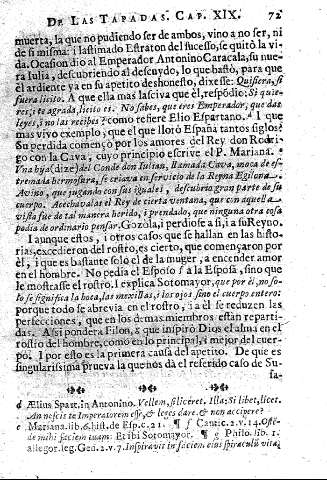 DE LAS TAPADAS. CAP. XIX. 72
muerta, la que no pudiendo ser de ambos, vino a no ser, ni
de si misma: i lastimado Estraton del sucesso, se quitò la vi-
da. Ocasion dio al Emperador Antonino Caracala, su nue-
ra Iulia, descubriendo al descuydo, lo que bastò, para que
èl ardiente ya en su apetito deshonesto, dixesse: Quisiera, si
fuera licito. A que ella mas lasciva que èl, respōdiò: Si quie-
res; te agrada, licito es. No sabes, que eres Emperador, que das
leyes, i no las recibes? como refiere Elio Espartano. I que
mas vivo exemplo, que el que llorò España tantos siglos?
Su perdida començò por los amores del Rey don Rodri-
go con la Cava, cuyo principio escrive el P. Mariana.
Una hija (dize) del Conde don Iulian, llamada Cava, moça de es-
tremada hermosura, se criava en servicio de la Reyna Egilona.
Avino, que jugando con sus iguales, descubriò gran parte de su
cuerpo. Acechavalas el Rey de cierta ventana, que con aquella
vista fue de tal manera herido, i prendado, que ninguna otra cosa
podia de ordinario pensar. Gozòla, i perdiose a si, i a su Reyno.
I aunque estos, i otros casos que se hallan en las histo-
rias, excedieron del rostro, es cierto, que començaron por
èl, i que es bastante solo el de la muger, a encender amor
en el hombre. No pedia el Esposo f a la Esposa, sino que
le mostrasse el rostro. I explica Sotomayor, que por èl, no so-
lo se significa la boca, las mexillas, i los ojos sino el cuerpo entero:
porque todo se abrevia en el rostro, i a èl se reduzen las
perfecciones, que en los demas miembros estàn reparti-
das. Assi pondera Filon, g que inspirò Dios el alma en el
rostro del hombre, como en lo principal, i mejor del cuer-
po. I por esto es la primera causa del apetito. De que es
singularissima prueva la que nos dà el referido caso de Su-
sa-
d Ælius Spart. in Antonino. Vellem, si liceret. Illa: Si libet, licet.
An nescis te Imperatorem esse, & leges dare, & non accipere?
e Mariana. lib. 6. hist. de Esp. c. 21. ¶ f Cantic. 2. v. 14. Osten-
de mihi faciem tuam: Et ibi Sotomayor. ¶ g Philo. lib. 1.
allegor. leg. Gen. 2. v. 7. Inspiravit in faciem eius spiraculū vitæ